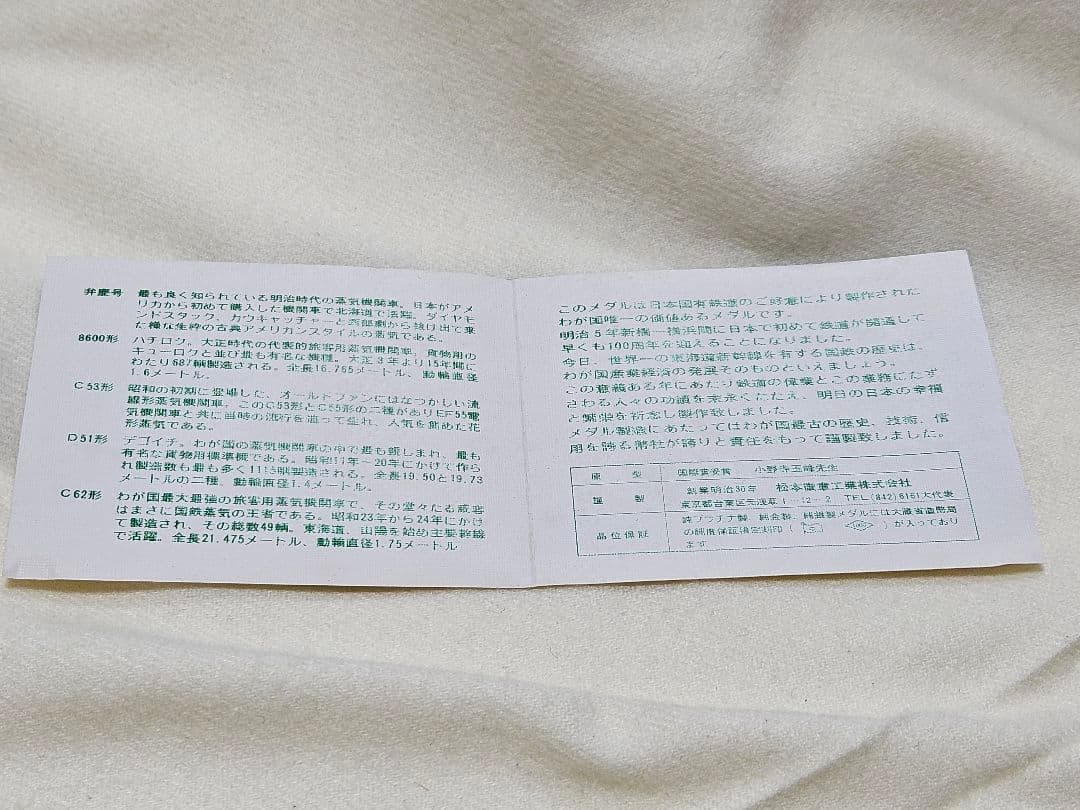 弁慶号 最も良く知られている明治時代の蒸気機関車。日本がアメ
リカから初めて購入した機関車で北海道で活躍。ダイヤモ
ンドスタック、カウキャッチャーと西部劇から抜け出て来
た様な生粋の古典アメリカンスタイルの蒸気である。
8600形 ハチロク。大正時代の代表的旅客用蒸気機関車。貨物用の
キューロクと並び最も有名な機種。大正3年より15年間に
わたり687輌製造される。全長16.765メートル、動輪直径
1.6メートル。
C53形 昭和の初期に登場した、オールドファンにはなつかしい流
線形蒸気機関車。このC53形とC55形の二種がありEF55電
気機関車と共に当時の流行を追って生れ、人気を集めた花
形蒸気である。
D51形 デゴイチ。わが国の蒸気機関車の中で最も親しまれ、最も
有名な貨発用標準機である。昭和11年〜20年にかけて作ら
れ製造数も最も多く1115輌製造される。全長19.50と19.73
メートルの二種、動輪直径1.4メートル。
C62形 わが国最大最強の旅客用蒸気機関車で、その堂々たる威容
はまさに国鉄蒸気の王者である。昭和23年から24年にかけ
て製造され、その総数49輌。東海道、山陽を始め主要幹線
で活躍。全長21.475メートル、動輪直径1.75メートル
このメダルは日本国有鉄道のご好意により製作された
わが国唯一の価値あるメダルです。
明治5年新橋—横浜間に日本で初めて鉄道が開通して
早くも100周年を迎えることになりました。
今日、世界一の東海道新幹線を有する国鉄の歴史は、
わが国産業経済の発展そのものといえましょう。
この意義ある年にあたり鉄道の偉業とこの業務にたず
さわる人々の功績を末永くたたえ、明日の日本の幸福
と繁栄を祈念し製作致しました。
メダル製造にあたってはわが国最古の歴史、技術、信
用を誇る弊社が誇りと責任をもって謹製致しました。
原型 国際賞受賞 小野寺玉峰先生
謹製 創業明治30年 松本徽章工業株式会社
東京都台東区元浅草1-12-2 TEL(842)6161大代表
品位保証 純プラチナ製、純金製、純銀製メダルには大蔵省造幣局
の純度保証検定刻印( )が入っており
ます